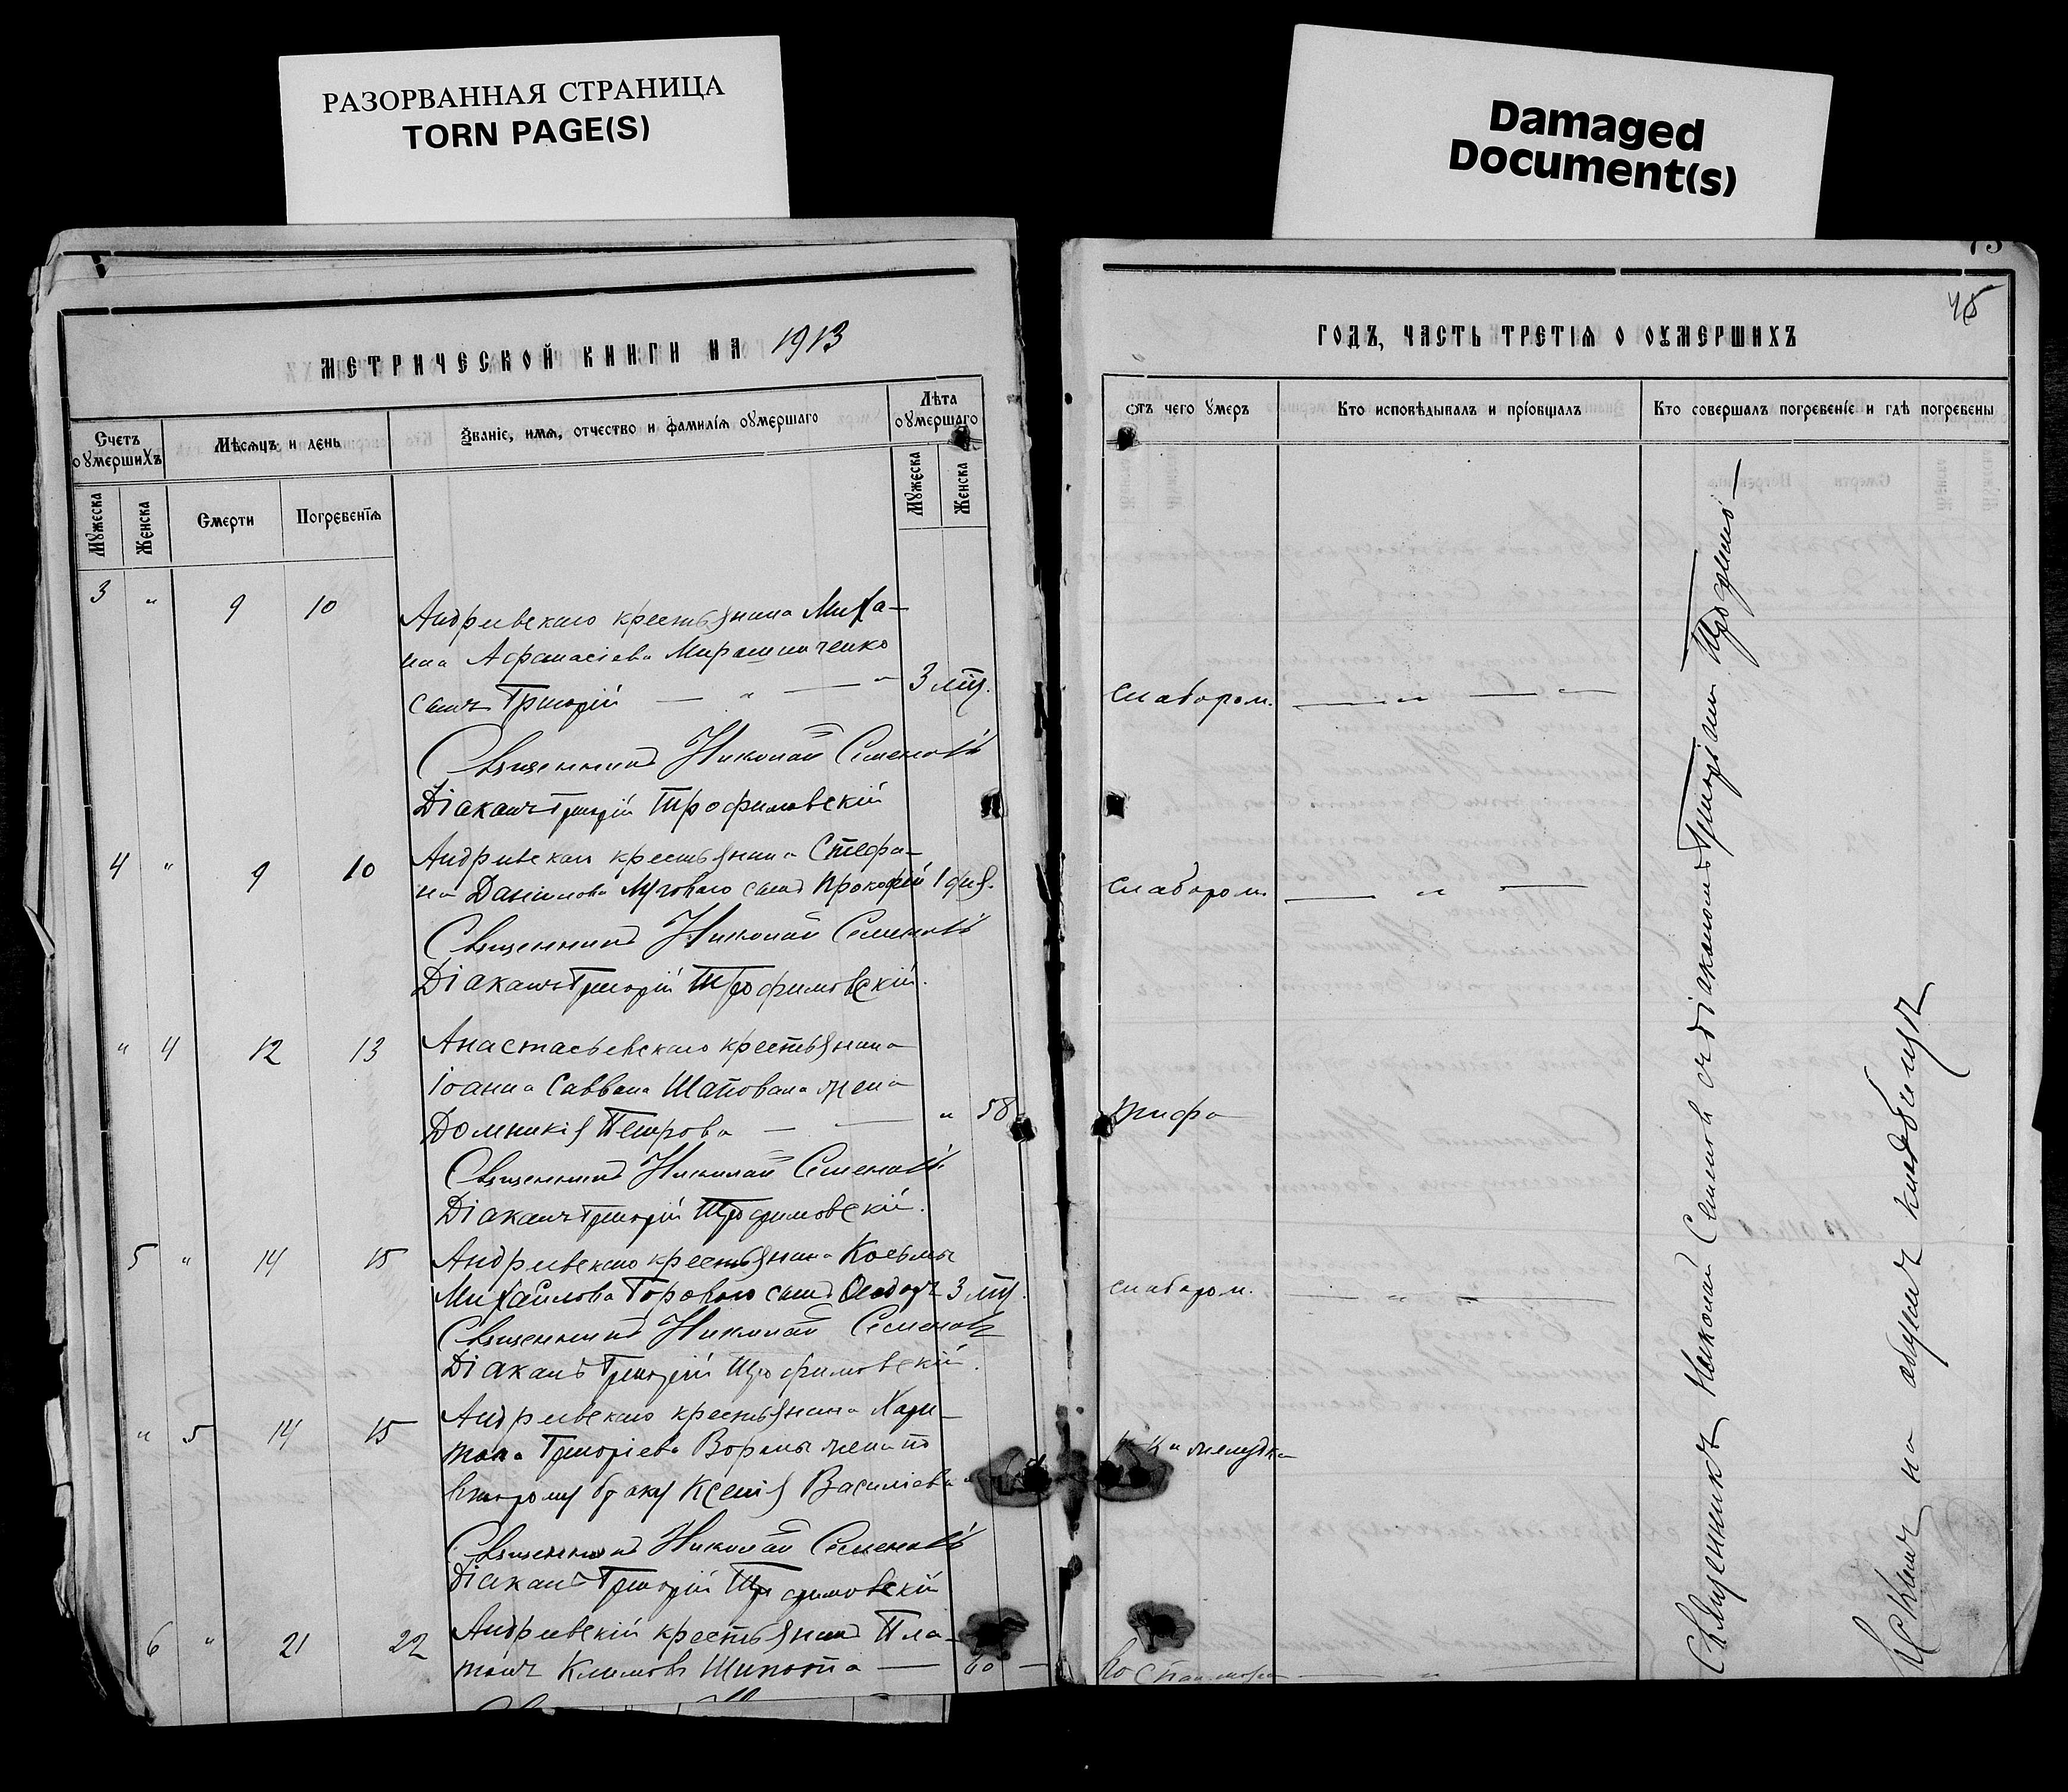 РАЗОРВАННАЯ СТРАНИЦА
TORN PAGE(S)
Damaged
Document(s)
МЕТРИЧЕСКОЙ КНИГИ НА 1913
Счетъ оумершихъ
Мѣсяцъ и день
Званіе, имя, отчество и фамилія оумершаго
Лѣта оумершаго
Мужеска
Женска
Смерти
Погребенія
Мужеска
Женска
3 " 9 10
Андреевскаго крестьянина Миха-
ила Афанасіева Мирошниченко
сынъ Григорій — " — " 3 мѣс.
Священникъ Николай Семеновъ
Діаконъ Григорій Трофимовскій
4 " 9 10
Андреевскаго крестьянина Стефа-
на Данилова сынъ Прокофій
Священникъ Николай Семеновъ
Діаконъ Григорій Трофимовскій.
" 4 12 13
Анастасьевскаго крестьянина
Іоанна Саввина Шаповала жена
Домникія Петрова — — " 58
Священникъ Николай Семеновъ
Діаконъ Григорій Трофимовскій.
5 " 14 15
Андреевскаго крестьянина Косьмы
Михайлова Горового сынъ Ѳеодоръ 3 мѣс.
Священникъ Николай Семеновъ
Діаконъ Григорій Трофимовскій.
" 5 14 15
Андреевскаго крестьянина Хари-
тона Григоріева жена по
второму браку Ксенія Василіева
Священникъ Николай Семеновъ
Діаконъ Григорій Трофимовскій
6 " 21 22
Андреевскій крестьянинъ Пла-
тонъ Климовъ Шипота — 60 —
45
ГОДЪ, ЧАСТЬ ТРЕТІЯ О ОУМЕРШИХЪ
отъ чего умеръ
Кто исповѣдывалъ и пріобщалъ
Кто совершалъ погребеніе и гдѣ погребены
слаборож. — " — "
слаборож. — " —
тифа
слаборож. — " — " —
желудка
Священникъ Николай Семеновъ съ діакономъ Григоріемъ Трофимо—
на общемъ кладбищѣ